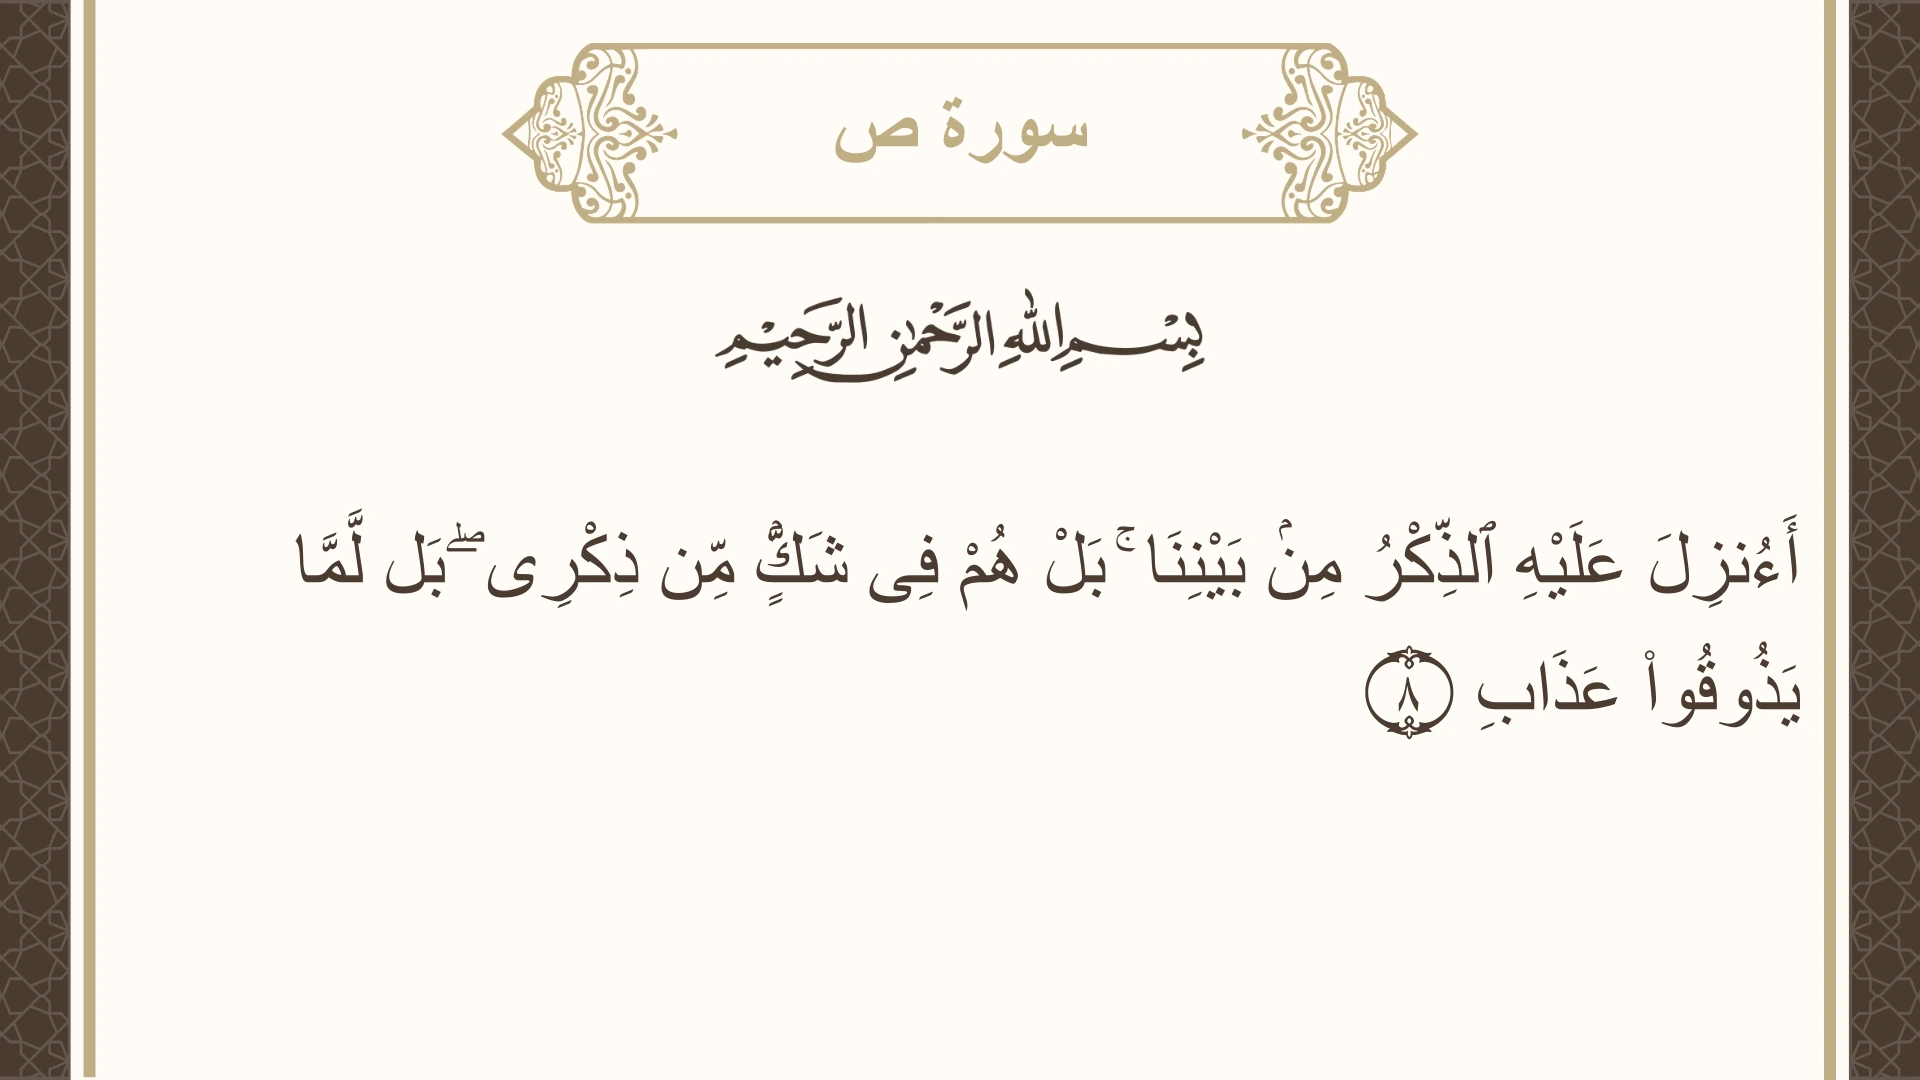 سورة ص
بِسْمِ اللَّهِ الرَّحْمَٰنِ الرَّحِيمِ
أَءُنزِلَ عَلَيْهِ ٱلذِّكْرُ مِنۢ بَيْنِنَا ۚ بَلْ هُمْ فِى شَكٍّۢ مِّن ذِكْرِى ۖ بَل لَّمَّا
يَذُوقُوا۟ عَذَابِ ٨